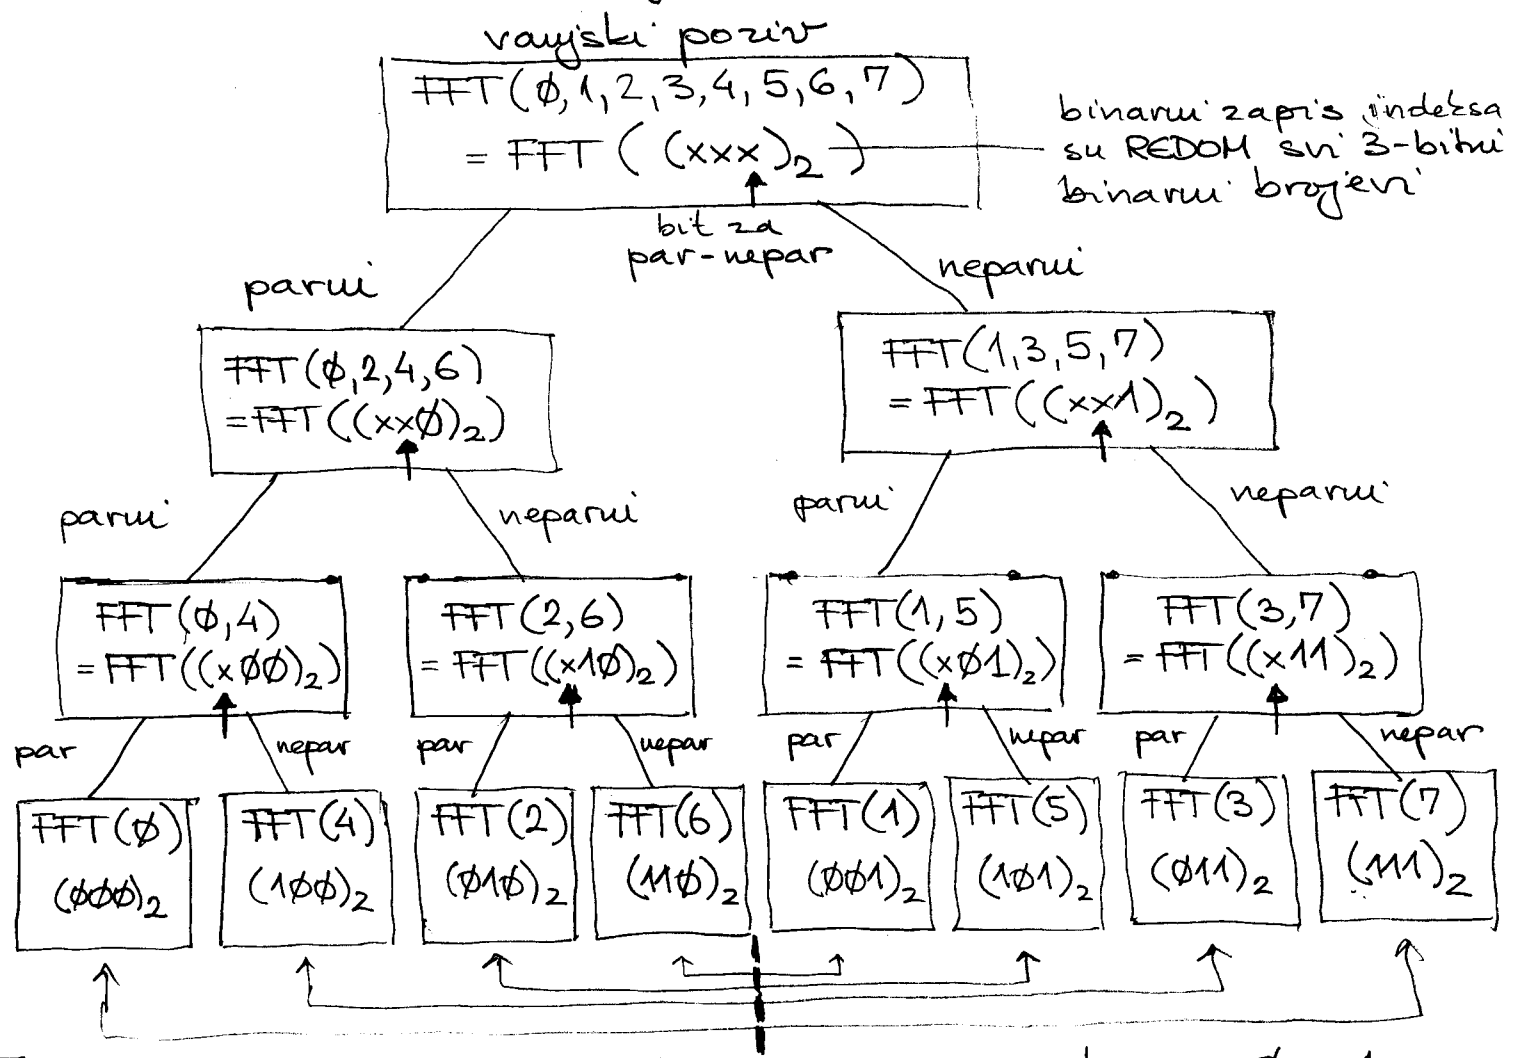 vanjski poziv
FFT(0,1,2,3,4,5,6,7)
= FFT((xxx)₂)
binarni zapis indeksa
su REDOM svi 3-bitni
binarni brojevi
bit za
par-nepar
parni
neparni
FFT(0,2,4,6)
=FFT((xx0)₂)
FFT(1,3,5,7)
= FFT((xx1)₂)
parni
neparni
parni
neparni
FFT(0,4)
= FFT((x00)₂)
FFT(2,6)
= FFT((x10)₂)
FFT(1,5)
= FFT((x01)₂)
FFT(3,7)
= FFT((x11)₂)
par
nepar
par
nepar
par
nepar
par
nepar
FFT(0)
(000)₂
FFT(4)
(100)₂
FFT(2)
(010)₂
FFT(6)
(110)₂
FFT(1)
(001)₂
FFT(5)
(101)₂
FFT(3)
(011)₂
FFT(7)
(111)₂